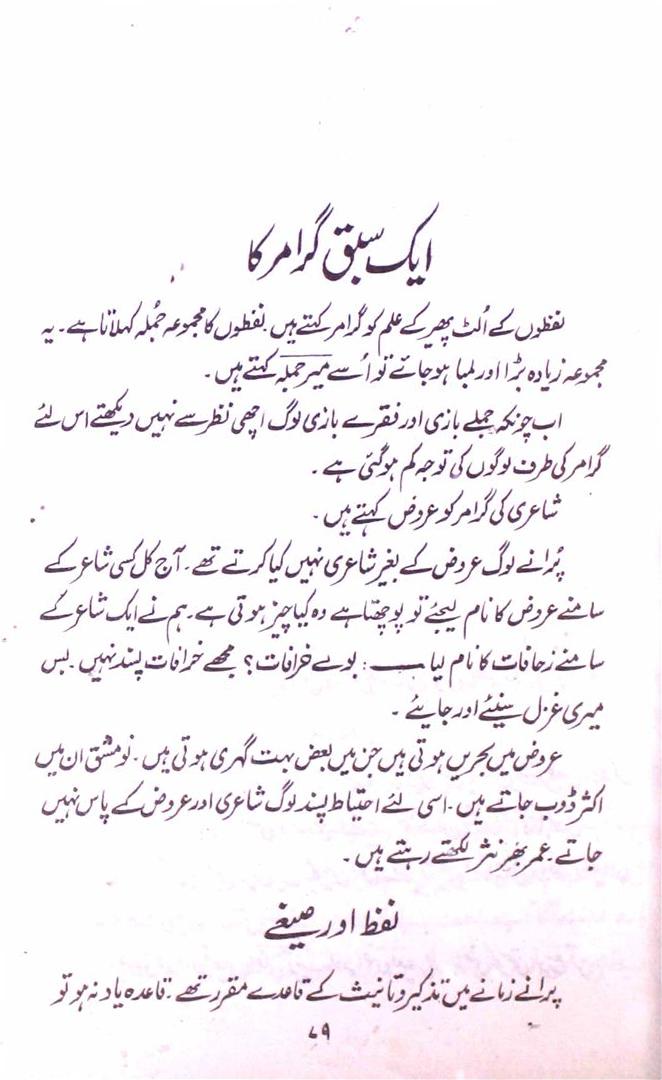 ایک سبق گرامر کا
لفظوں کے اُلٹ پھیر کے علم کو گرامر کہتے ہیں۔ لفظوں کا مجموعہ جُملہ کہلاتا ہے۔ یہ
مجموعہ زیادہ بڑا اور لمبا ہو جائے تو اُسے میر جملہ کہتے ہیں۔
اب چونکہ جملے بازی اور فقرے بازی لوگ اچھی نظر سے نہیں دیکھتے اس لئے
گرامر کی طرف لوگوں کی توجہ کم ہو گئی ہے۔
شاعری کی گرامر کو عروض کہتے ہیں۔
پُرانے لوگ عروض کے بغیر شاعری نہیں کیا کرتے تھے۔ آج کل کسی شاعر کے
سامنے عروض کا نام لیجئے تو پوچھتا ہے وہ کیا چیز ہوتی ہے۔ ہم نے ایک شاعر کے
سامنے زحافات کا نام لیا ——: بولے خرافات؟ مجھے خرافات پسند نہیں۔ بس
میری غزل سنیئے اور جایئے۔
عروض میں بحریں ہوتی ہیں جن میں بعض بہت گہری ہوتی ہیں۔ نو مشق ان میں
اکثر ڈوب جاتے ہیں۔ اسی لئے احتیاط پسند لوگ شاعری اور عروض کے پاس نہیں
جاتے۔ عمر بھر نثر لکھتے رہتے ہیں۔
لفظ اور صیغے
پرانے زمانے میں تذکیر و تانیث کے قاعدے مقرر تھے۔ قاعدہ یاد نہ ہو تو
۷۹